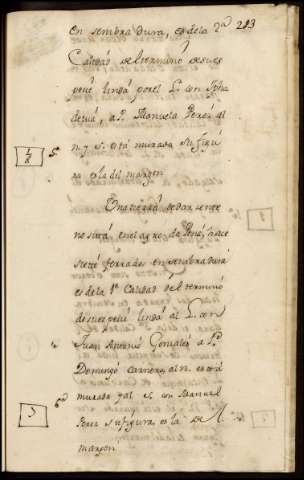 en sembradura, es de la 2ª 213
Calidad del termino de su es
pecie linda por el L. con
a P. Manuela Perez al
N. y S. está murada su figu
ra es la del margen
Una tierra de dar cente
no sita en el agro da Pena, hace
siete ferrados en sembradura
es de la 1ª Calidad del termino
de su especie linda al L. con
Juan Antonio Gonzalez a P.
Domingo Carnero, al N. está
murada y al S. con Manuel
Perez su figura es la del
margen